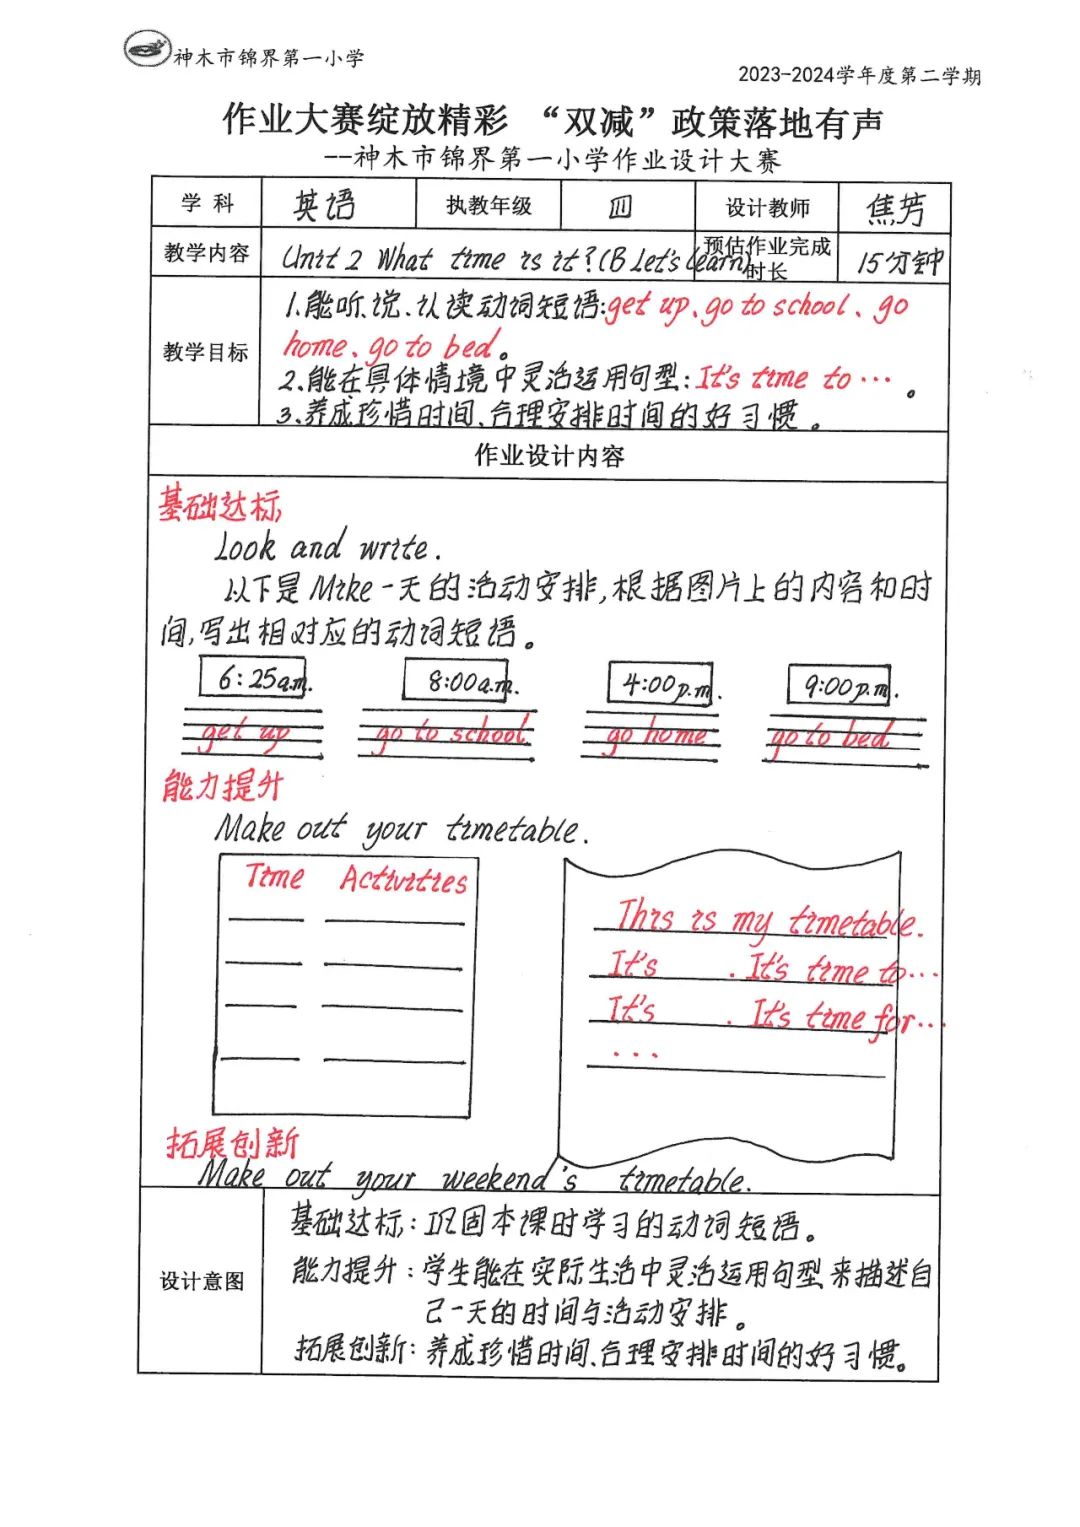 神木市锦界第一小学
2023-2024学年度第二学期
作业大赛绽放精彩 “双减”政策落地有声
--神木市锦界第一小学作业设计大赛
学 科 英语 执教年级 四 设计教师 焦芳
教学内容 Unit 2 What time is it?(B Let's learn) 预估作业完成时长 15分钟
教学目标
1.能听、说、认读动词短语:get up、go to school、go
home、go to bed。
2.能在具体情境中灵活运用句型:It's time to… 。
3.养成珍惜时间、合理安排时间的好习惯。
作业设计内容
基础达标
Look and write.
以下是Mike一天的活动安排,根据图片上的内容和时
间,写出相对应的动词短语。
6:25a.m. 8:00a.m. 4:00p.m. 9:00p.m.
get up go to school go home go to bed
能力提升
Make out your timetable.
Time Activities
This is my timetable.
It's . It's time to…
It's . It's time for…
...
拓展创新
Make out your weekend's timetable.
设计意图
基础达标:巩固本课时学习的动词短语。
能力提升:学生能在实际生活中灵活运用句型来描述自
己一天的时间与活动安排。
拓展创新:养成珍惜时间、合理安排时间的好习惯。